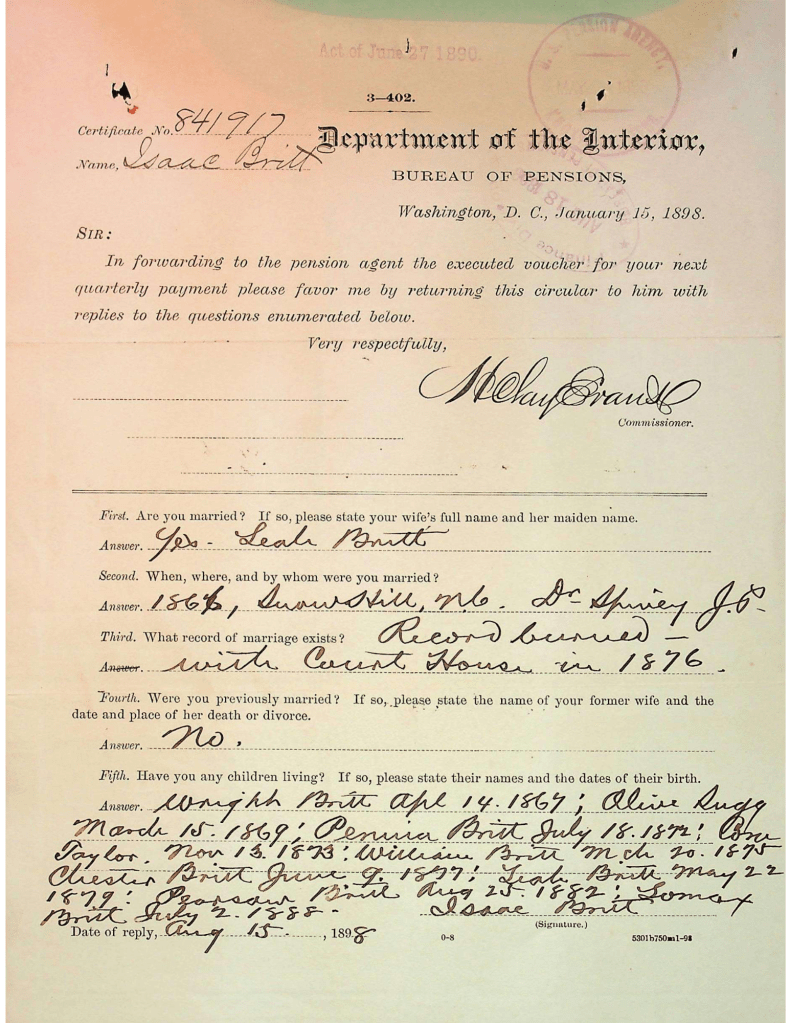 Act of June 27 1890.
U. S. PENSION AGENCY,
3—402.
Certificate No. 841917
Department of the Interior,
Name, Isaac Britt
BUREAU OF PENSIONS,
Washington, D. C., January 15, 1898.
SIR:
In forwarding to the pension agent the executed voucher for your next
quarterly payment please favor me by returning this circular to him with
replies to the questions enumerated below.
Very respectfully,
H Clay Evans
Commissioner.
First. Are you married? If so, please state your wife's full name and her maiden name.
Answer. Yes - Leah Britt
Second. When, where, and by whom were you married?
Answer. 1866, Snow Hill, N.C. Dr Spivey J.P.
Third. What record of marriage exists? Record burned —
Answer. with Court House in 1876.
Fourth. Were you previously married? If so, please state the name of your former wife and the
date and place of her death or divorce.
Answer. No.
Fifth. Have you any children living? If so, please state their names and the dates of their birth.
Answer. Wright Britt Apl 14. 1867; Olive Sugg
March 15. 1869; Pennina Britt July 18. 1872;
Taylor. Nov 13. 1873; William Britt Mch 20. 1875
Chester Britt June 9. 1877; Leah Britt May 22
1879; Pearson Britt Aug 25. 1882; Lomax
Britt July 2. 1888. Isaac Britt
(Signature.)
Date of reply, Aug 15, 1898
0-8 5301b750m1-98